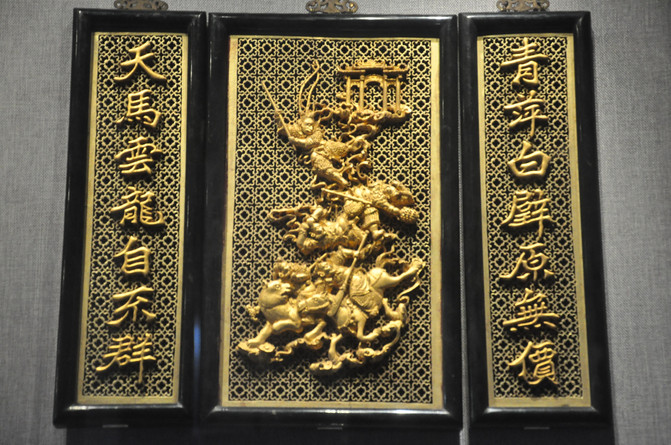 青萍白璧原無價
天馬雲龍自不群